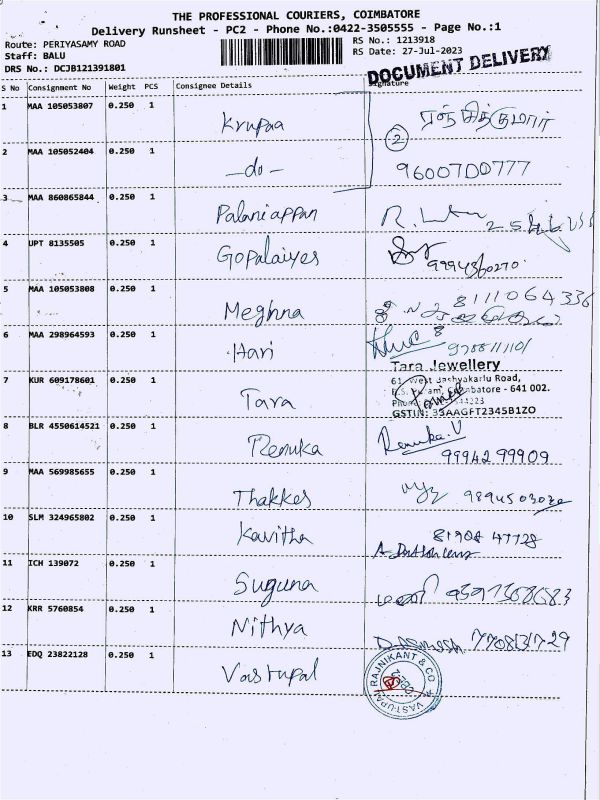 THE PROFESSIONAL COURIERS, COIMBATORE
Delivery Runsheet - PC2 - Phone No.:0422-3505555 - Page No.:1
Route: PERIYASAMY ROAD RS No.: 1213918
Staff: BALU RS Date: 27-Jul-2023
DRS No.: DCJB121391801 DOCUMENT DELIVERY
S No Consignment No Weight PCS Consignee Details Signature
1 MAA 105053807 0.250 1 Krupaa ரஞ்சித்குமார்
2 MAA 105052404 0.250 1 -do- 2 9600700777
3 MAA 860865844 0.250 1 Palaniappan
4 UPT 8135505 0.250 1 Gopalaiyes
5 MAA 105053808 0.250 1 Meghna 8111064336
6 MAA 298964593 0.250 1 Hari
7 KUR 609178601 0.250 1 Tara Tara Jewellery
61, West Bashyakarlu Road,
R.S. Puram, Coimbatore - 641 002.
GSTIN: 33AAGFT2345B1ZO
8 BLR 4550614521 0.250 1 Renuka Renuka.V
9994299909
9 MAA 569985655 0.250 1 Thakkes
10 SLM 324965802 0.250 1 Kavitha 81908 47728
11 ICH 139072 0.250 1 Suguna
12 KRR 5760854 0.250 1 Nithya
13 EDQ 23822128 0.250 1 Vastupal RAJNIKANT & CO
VASTUPAL